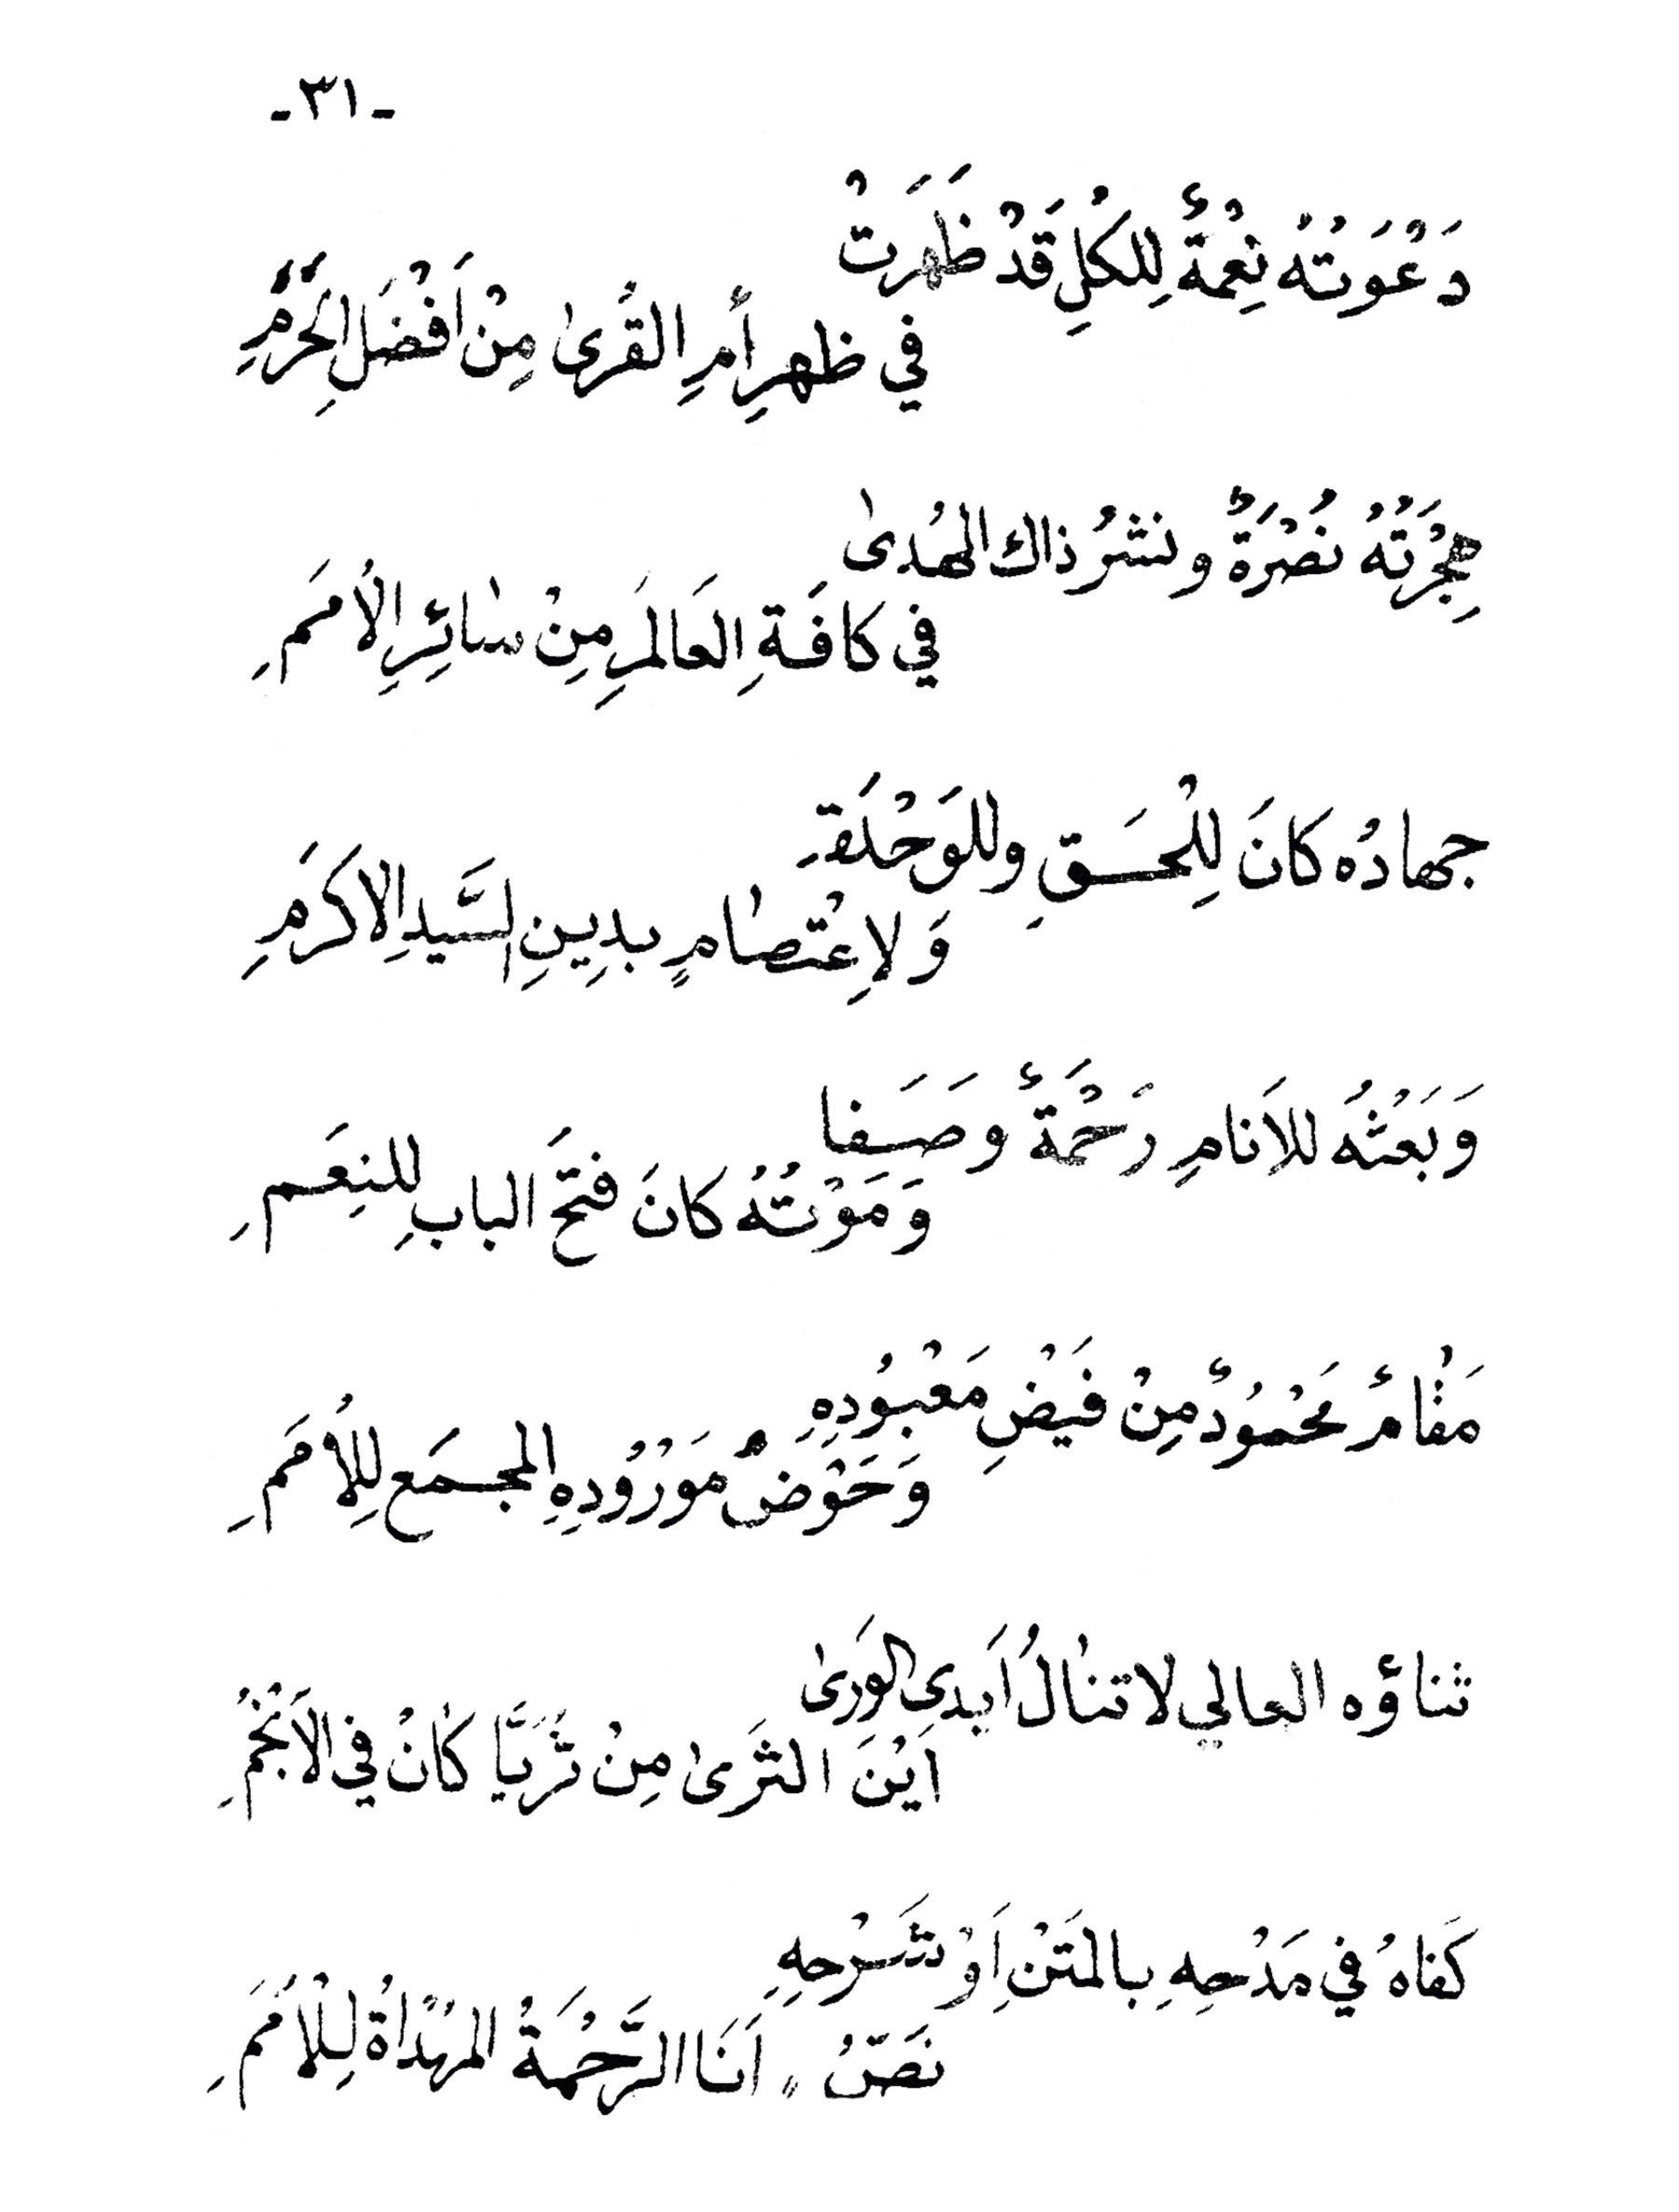 -٣١-
دَعْوَتُهُ نِعْمَةٌ لِلكُلِ قَدْ ظَهَرَتْ
في ظهرِ أمِ القُرىٰ مِنْ اَفْضَلِ الحَرَمِ
هِجْرَتُهُ نُصْرَةٌ ونشرُ ذاك الهُدىٰ
في كافَةِ العَالَمِ مِنْ سٰائِرِ الاُمَمِ
جهادُه كانَ لِلْحَقِ وللوَحْدَةِ
وَلاِعْتصٰامٍ بدِينِ السَّيدِ الاكرَمِ
وَبَعْثُهُ للاَنامِ رَحْمَةٌ وصَفا
وَمَوْتُهُ كانَ فتحَ البابِ للنِعَمِ
مَقٰامٌ مَحْمُودٌ مِنْ فَيْضِ مَعْبُودِهِ
وَحَوْضُ مَوْرُودِهِ المجمَع لِلاُمَمِ
ثناؤه العالي لا تنٰالُ اَيدىِ الوَرىٰ
اَيْنَ الثَرىٰ مِنْ ثُرَيَّا كٰانَ في الاَنْجُمِ
كَفاهُ في مَدْحِهِ بالمَتْنِ اَوْ شَرْحِهِ
نَصّ‌ُ " اَنَا الرَّحْمَةُ المُهْدٰاةُ لِلْاُمَمِ